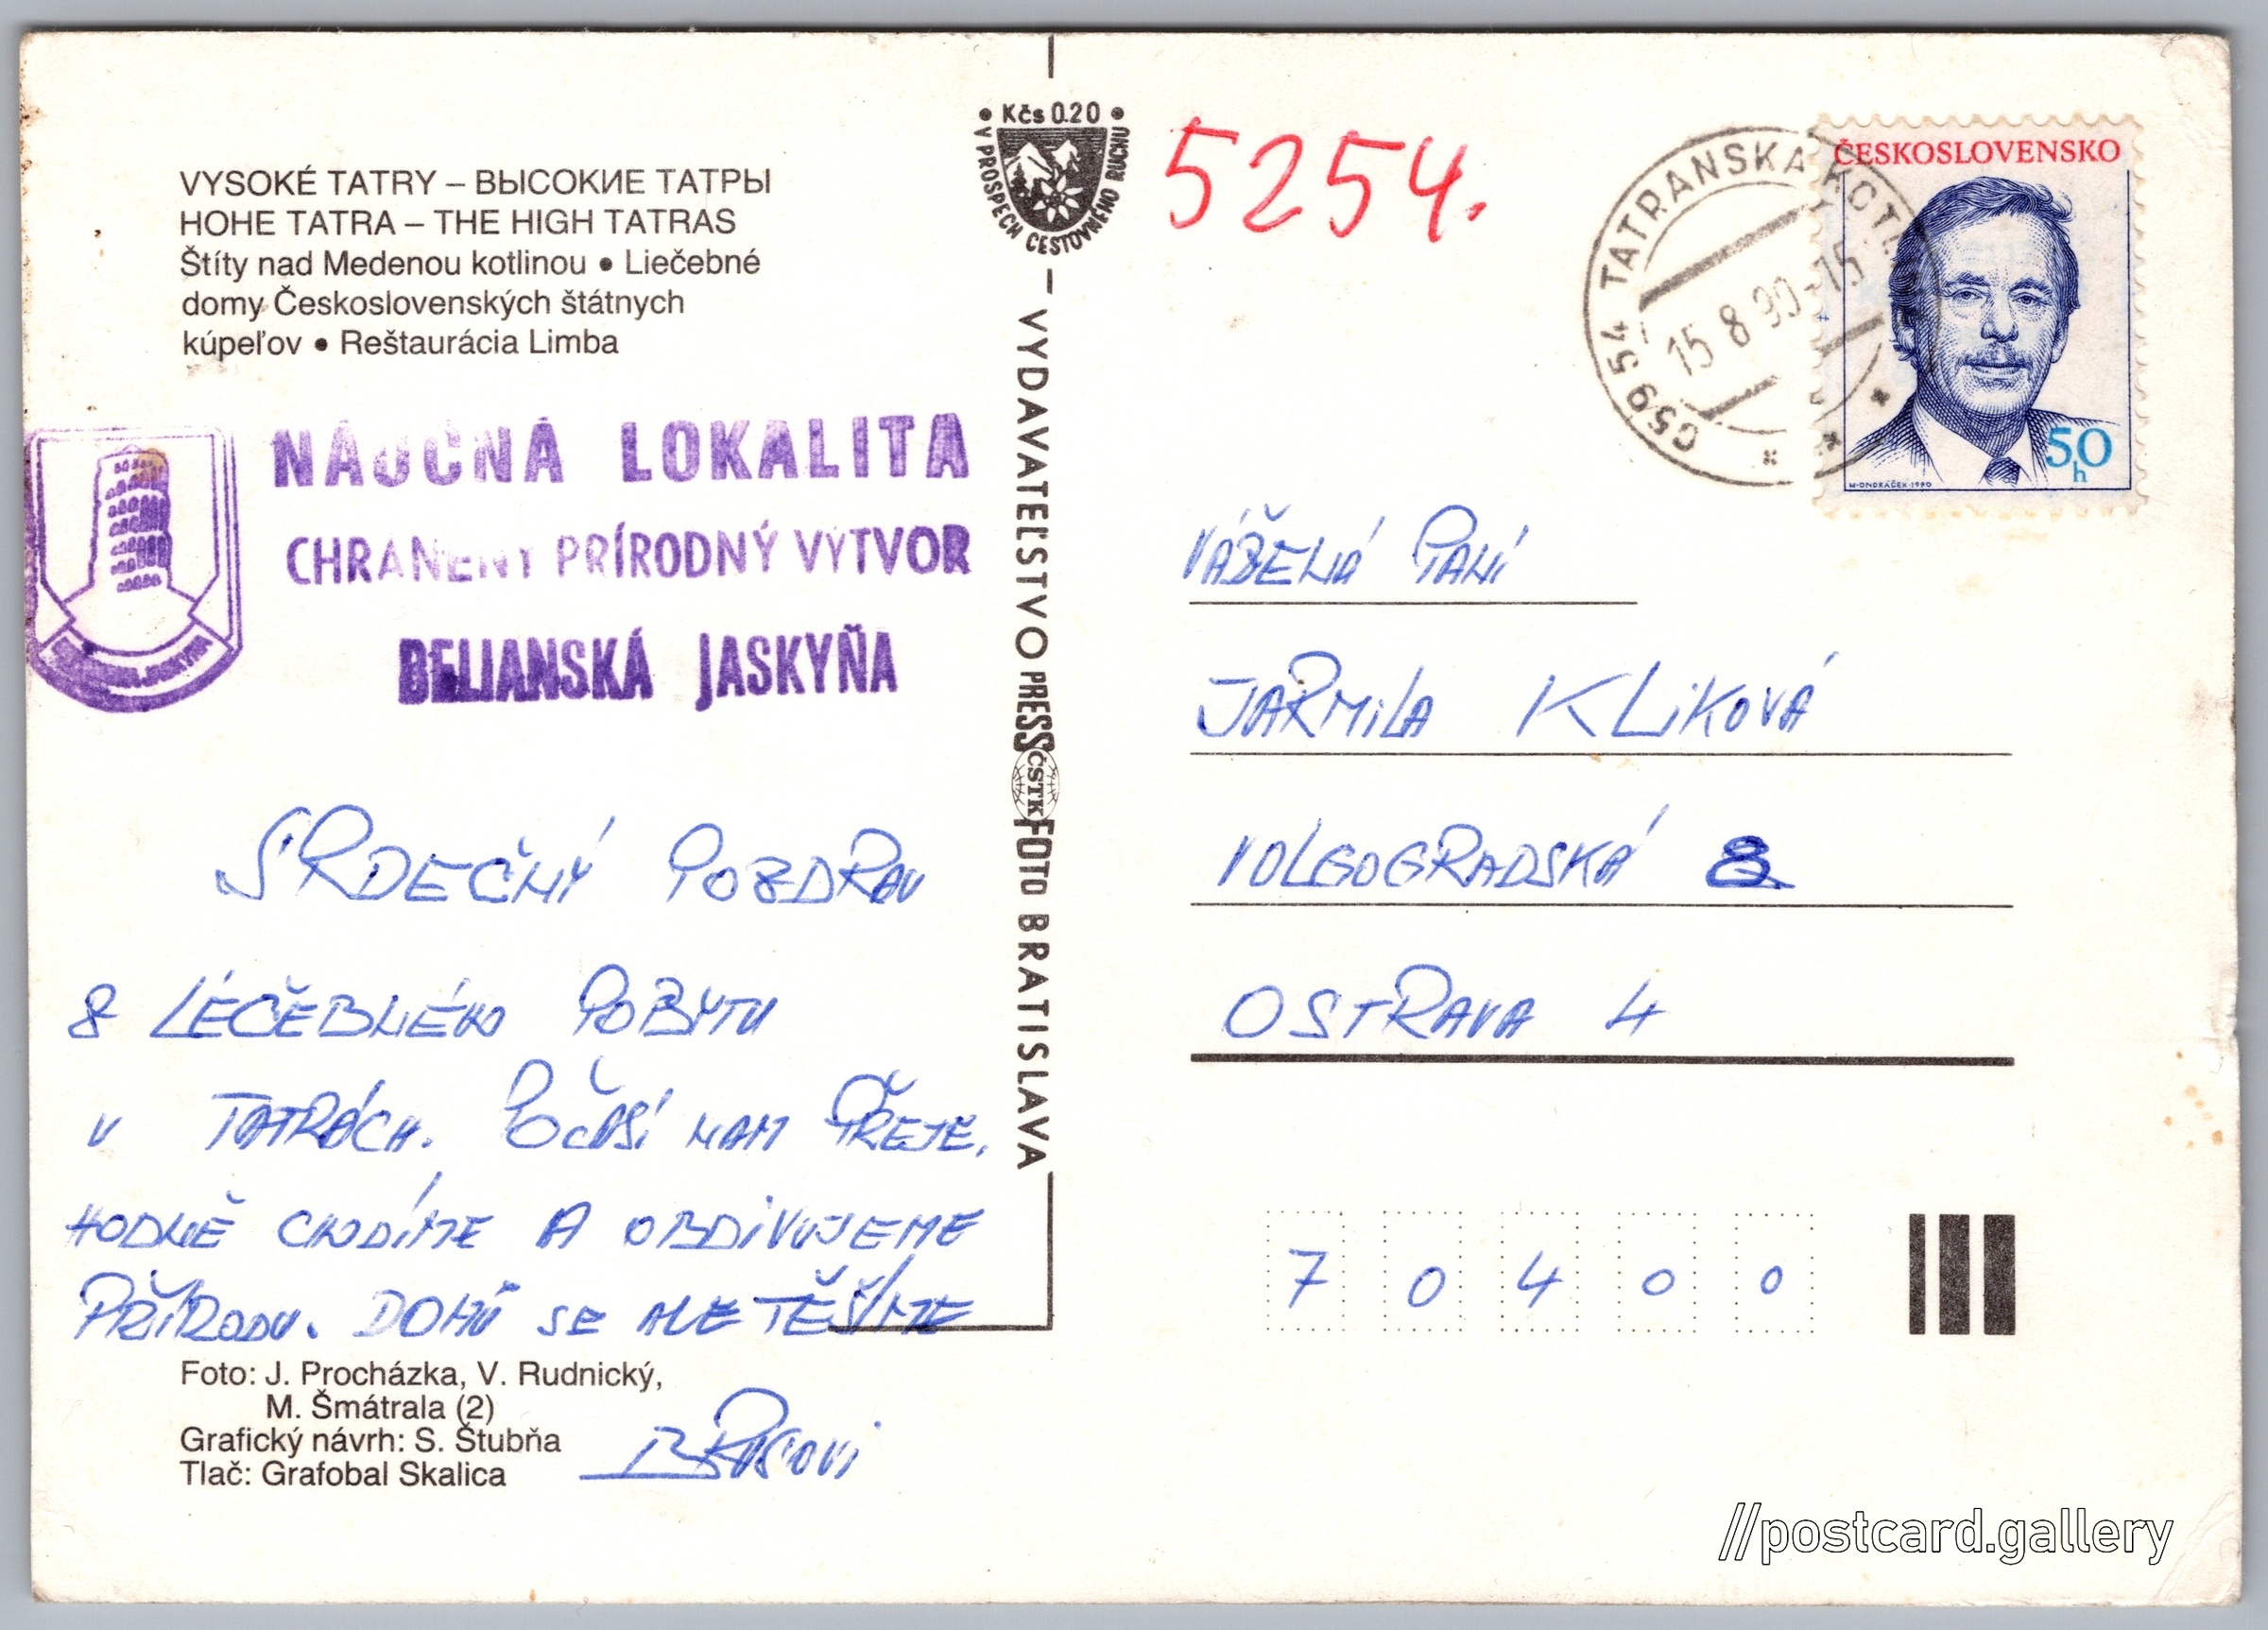 VYSOKÉ TATRY – ВЫСОКИЕ ТАТРЫ
HOHE TATRA – THE HIGH TATRAS
Štíty nad Medenou kotlinou • Liečebné
domy Československých štátnych
kúpeľov • Reštaurácia Limba
NÁUČNÁ LOKALITA
CHRÁNENÝ PRÍRODNÝ VÝTVOR
BELIANSKÁ JASKYŇA
SRDEČNÝ POZDRAV
Z LÉČEBNÉHO POBYTU
V TATRÁCH. POČASÍ NAM PŘEJE,
HODNĚ CHODÍME A OBDIVUJEME
PŘÍRODU. DOMŮ SE ALE TĚŠÍME
Foto: J. Procházka, V. Rudnický,
M. Šmátrala (2)
Grafický návrh: S. Štubňa
Tlač: Grafobal Skalica
• Kčs 0.20 •
V PROSPECH CESTOVNÉHO RUCHU
VYDAVATEĽSTVO PRESSFOTO BRATISLAVA
ČSTK
5254.
059 54 TATRANSKÁ KOTL
15.8.90-15
ČESKOSLOVENSKO
50
h
M·ONDRÁČEK·1990
VÁŽENÁ PANÍ
JARMILA KLIKOVÁ
VOLGOGRADSKÁ 8
OSTRAVA 4
7 0 4 0 0
//postcard.gallery